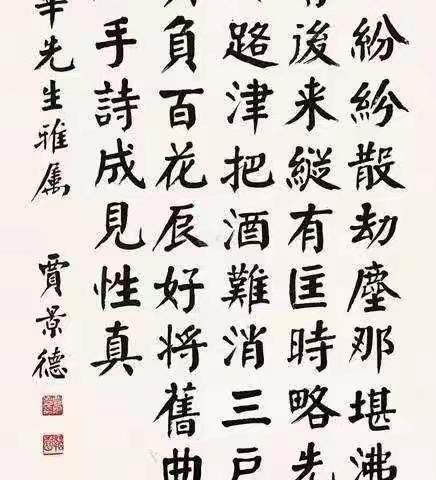 紛紛散劫塵那堪沸
後来縱有匡時略先
路津把酒難消三戶
負百花辰好將舊曲
手詩成見性真
華先生雅属
賈景德